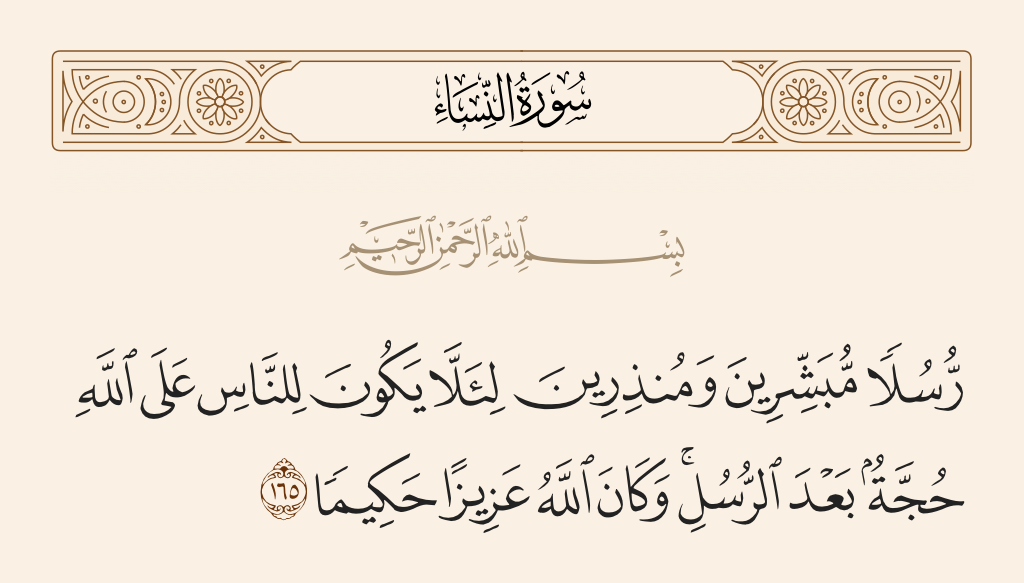 سُورَةُ النِّسَاءِ
بِسْمِ ٱللَّهِ ٱلرَّحْمَٰنِ ٱلرَّحِيمِ
رُّسُلًا مُّبَشِّرِينَ وَمُنذِرِينَ لِئَلَّا يَكُونَ لِلنَّاسِ عَلَى ٱللَّهِ
حُجَّةٌۢ بَعْدَ ٱلرُّسُلِۚ وَكَانَ ٱللَّهُ عَزِيزًا حَكِيمًا ١٦٥